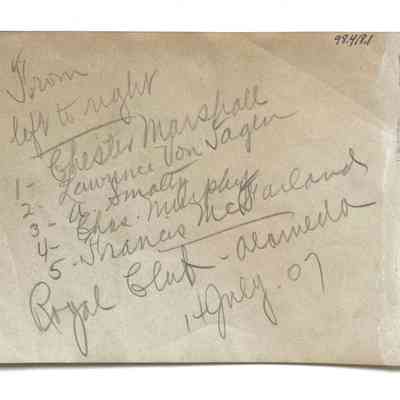 98.41P.1
From
left to right
1- Chester Marshall
2- Lawrence Von Tagen
3- A. Small
4- Chas. Murphy
5- Francis McFarland
Royal Club - Alameda
July. 07